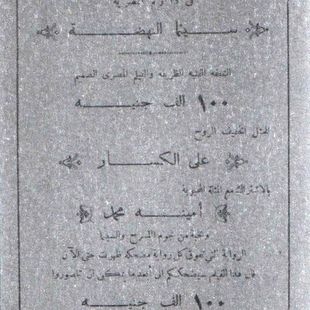 سينما النهضة
التحفة الفنية الظريفة والفيلم المصرى الصميم
١٠٠ الف جنيه
الخفيف الروح
على الكسار
بالاشتراك مع المثلة المحبوبة
أمينه محمد
ونخبة من نجوم المسرح والسينما
الرواية التى تفوق كل رواية مضحكة ظهرت حتى الآن
١٠٠ الف جنيه